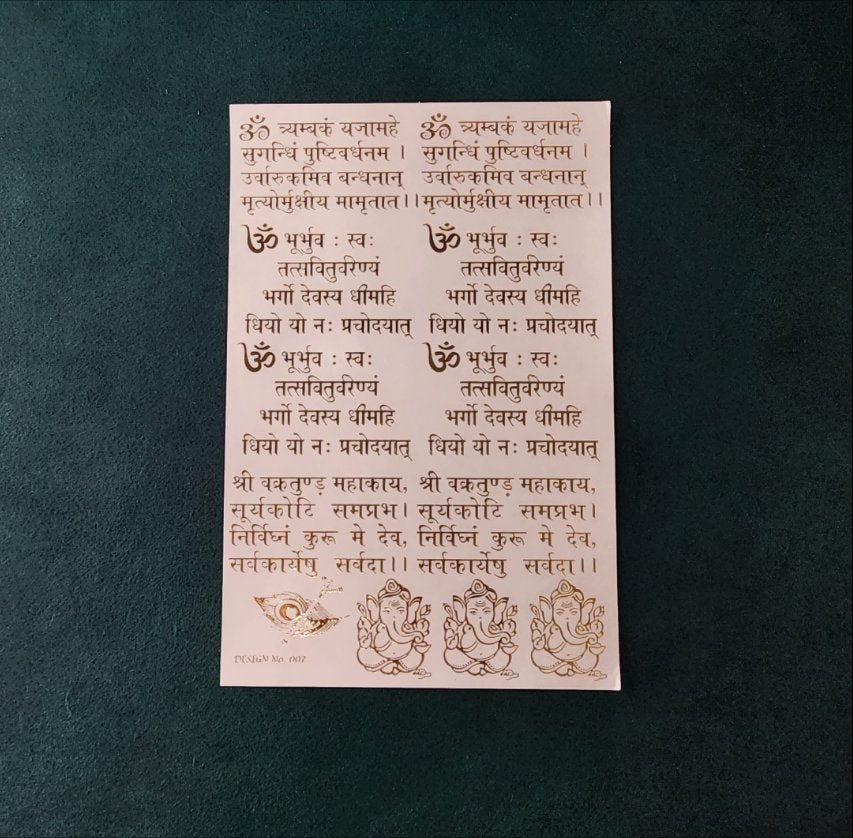 ॐ त्र्यम्बकं यजामहे
सुगन्धिं पुष्टिवर्धनम ।
उर्वारुकमिव बन्धनान्
मृत्योर्मुक्षीय मामृतात ।।
ॐ त्र्यम्बकं यजामहे
सुगन्धिं पुष्टिवर्धनम ।
उर्वारुकमिव बन्धनान्
मृत्योर्मुक्षीय मामृतात ।।
ॐ भूर्भुव : स्वः
तत्सवितुर्वरेण्यं
भर्गो देवस्य धीमहि
धियो यो नः प्रचोदयात्
ॐ भूर्भुव : स्वः
तत्सवितुर्वरेण्यं
भर्गो देवस्य धीमहि
धियो यो नः प्रचोदयात्
ॐ भूर्भुव : स्वः
तत्सवितुर्वरेण्यं
भर्गो देवस्य धीमहि
धियो यो नः प्रचोदयात्
ॐ भूर्भुव : स्वः
तत्सवितुर्वरेण्यं
भर्गो देवस्य धीमहि
धियो यो नः प्रचोदयात्
श्री वक्रतुण्ड़ महाकाय,
सूर्यकोटि समप्रभ।
निर्विघ्नं कुरू मे देव,
सर्वकार्येषु सर्वदा।।
श्री वक्रतुण्ड़ महाकाय,
सूर्यकोटि समप्रभ।
निर्विघ्नं कुरू मे देव,
सर्वकार्येषु सर्वदा।।
DESIGN No. 007